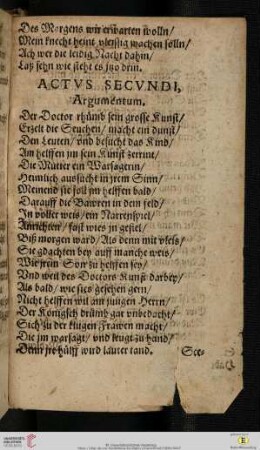 Des Morgens wir erwarten wolln/
Mein knecht heint vleissig wachen solln/
Ach wer die leidig Nacht dahin/
Laß sehn wie steht es jtzo drin.
ACTVS SECVNDI,
Argumentum.
Der Doctor rhümb sein grosse Kunst/
Erzelt die Seuchen/ macht ein dunst/
Den Leuten/ vnd besucht das Kind/
Am helffen jm sein Kunst zerrint/
Die Mutter ein Warsagerin/
Heimlich aufsucht in jrem Sinn/
Meinend sie soll jm helffen bald/
Darauff die Bawren in dem feld/
In voller weis/ ein Narrenspiel/
Anrichten/ fast wies jn gefiel/
Biß morgen ward/ Als denn mit vleis/
Sie gdachten bey auff manche weis/
Wie jrem Son zu helffen sey/
Vnd weil des Doctors Kunst darbey/
Als bald/ wie sies gesehen gern/
Nicht helffen wil am jungen Herrn/
Der Königsch drümb gar vnbedacht/
Sich zu der klugen Frawen macht/
Die jm warsagt/ vnd leugt zu hand/
Denn jre hülff wird lauter tand.